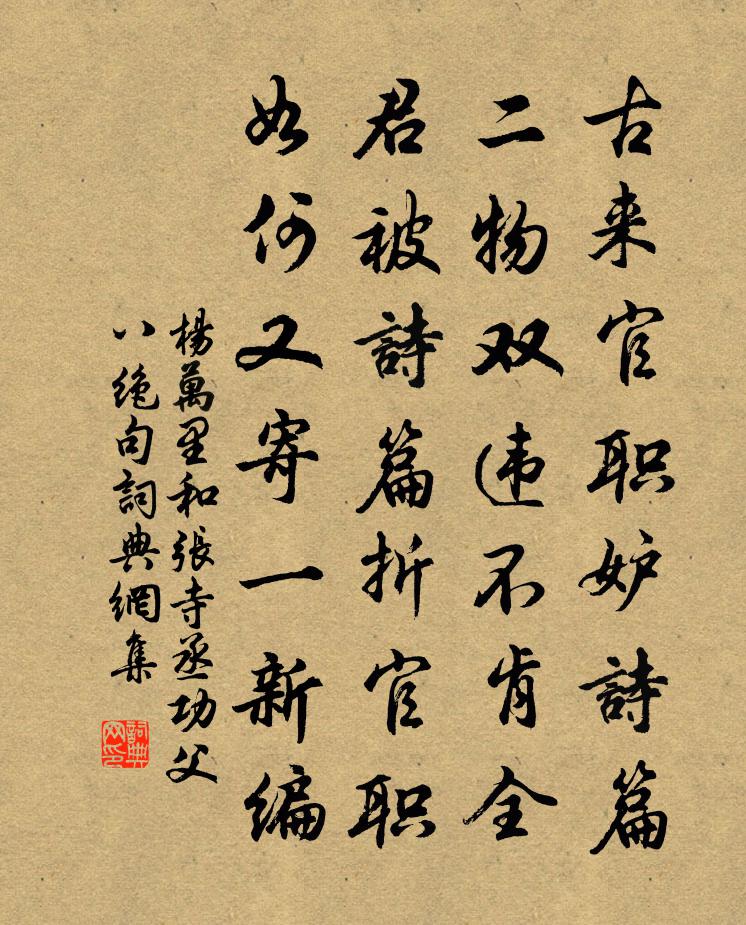 古来官职妒詩篇
二物双违不肯全
君被詩篇折官职
如何又寄一新编
楊萬里和張寺丞功父
八绝句詞典網集
詞典
网印